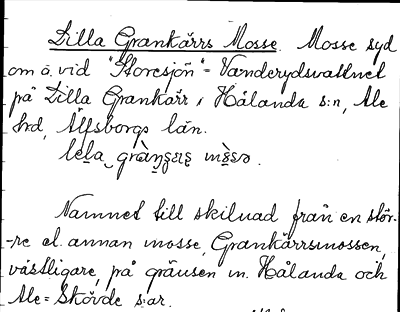 Lilla Grankärrs Mosse. Mosse syd
om o. vid "Storesjön" = Vanderydsvattnet
på Lilla Grankärr i Hålanda s:n, Ale
hrd, Älfsborgs län.
Namnet till skilnad från en stör-
-re el. annan mosse, Grankärrsmossen,
västligare, på gränsen m. Hålanda och
Ale = Skövde s:ar.